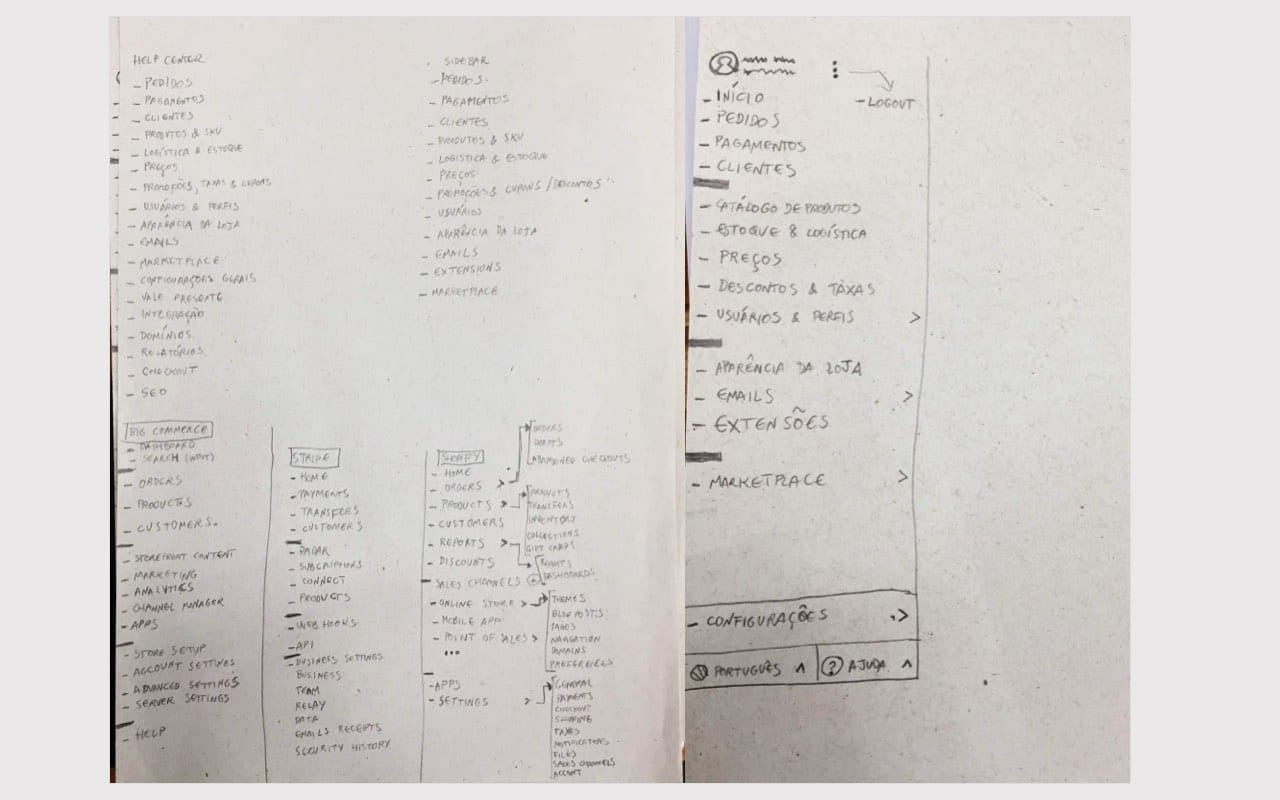 HELP CENTER
- PEDIDOS
- PAGAMENTOS
- CLIENTES
- PRODUTOS & SKU
- LOGÍSTICA & ESTOQUE
- PREÇOS
- PROMOÇÕES, TAXAS & CUPONS
- USUÁRIOS & PERFIS
- APARÊNCIA DA LOJA
- EMAILS
- MARKETPLACE
- CONFIGURAÇÕES GERAIS
- VALE PRESENTE
- INTEGRAÇÃO
- DOMÍNIOS
- RELATÓRIOS
- CHECKOUT
- SEO
SIDEBAR
- PEDIDOS
- PAGAMENTOS
- CLIENTES
- PRODUTOS & SKU
- LOGISTICA & ESTOQUE
- PREÇOS
- PROMOÇÕES & CUPONS / DESCONTOS
- USUÁRIOS
- APARÊNCIA DA LOJA
- EMAILS
- EXTENSIONS
- MARKETPLACE
BIG COMMERCE
- DASHBOARD
- SEARCH (INPUT)
- ORDERS
- PRODUCTS
- CUSTOMERS
- STOREFRONT CONTENT
- MARKETING
- ANALYTICS
- CHANNEL MANAGER
- APPS
- STORE SETUP
- ACCOUNT SETTINGS
- ADVANCED SETTINGS
- SERVER SETTINGS
- HELP
STRIPE
- HOME
- PAYMENTS
- TRANSFERS
- CUSTOMERS
- RADAR
- SUBSCRIPTIONS
- CONNECT
- PRODUCTS
- WEBHOOKS
- API
- BUSINESS SETTINGS
BUSINESS
TEAM
RELAY
DATA
EMAILS RECEIPTS
SECURITY HISTORY
SHOPIFY
- HOME
- ORDERS >
- PRODUCTS >
- CUSTOMERS
- REPORTS >
- DISCOUNTS
SALES CHANNELS +
- ONLINE STORE >
- MOBILE APP
- POINT OF SALES >
•••
- APPS
- SETTINGS >
ORDERS
DRAFTS
ABANDONED CHECKOUTS
PRODUCTS
TRANSFERS
INVENTORY
COLLECTIONS
GIFT CARDS
REPORTS
DASHBOARDS
THEMES
BLOG POSTS
PAGES
NAVIGATION
DOMAINS
PREFERENCES
GENERAL
PAYMENTS
CHECKOUT
SHIPPING
TAXES
NOTIFICATIONS
FILES
SALES CHANNELS
ACCOUNT
- LOGOUT
- INÍCIO
- PEDIDOS
- PAGAMENTOS
- CLIENTES
- CATÁLOGO DE PRODUTOS
- ESTOQUE & LOGÍSTICA
- PREÇOS
- DESCONTOS & TAXAS
- USUÁRIOS & PERFIS >
- APARÊNCIA DA LOJA
- EMAILS >
- EXTENSÕES
- MARKETPLACE >
- CONFIGURAÇÕES >
PORTUGUÊS ^
? AJUDA ^